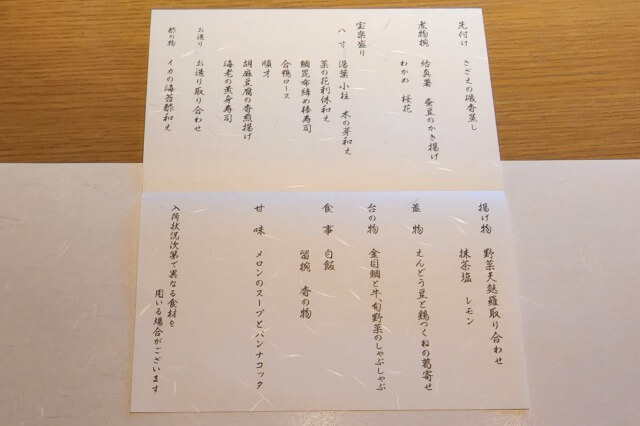 先付け　さざえの磯香蒸し
煮物椀　蛤真薯　蚕豆のかき揚げ
わかめ　桜花
宝楽盛り
八寸　湯葉　小柱　木の芽和え
菜の花利休和え
鯛昆布締め棒寿司
合鴨ロース
順才
胡麻豆腐の香煎揚げ
海老の黄身寿司
お造り　お造り取り合わせ
酢の物　イカの海苔酢和え
揚げ物　野菜天麩羅取り合わせ
抹茶塩　レモン
蓋物　えんどう豆と鶏つくねの葛寄せ
台の物　金目鯛と牛、旬野菜のしゃぶしゃぶ
食事　白飯
留椀　香の物
甘味　メロンのスープとパンナコッタ
入荷状況次第で異なる食材を
用いる場合がございます